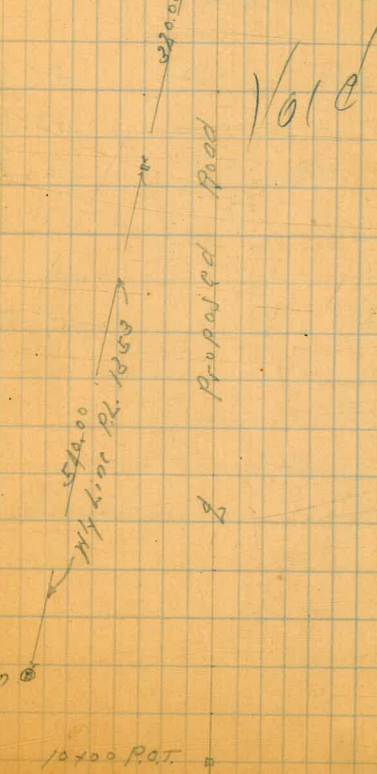 Void
Proposed Road
℄
510.00
Wly Line P.L. 1353
10+00 P.O.T.